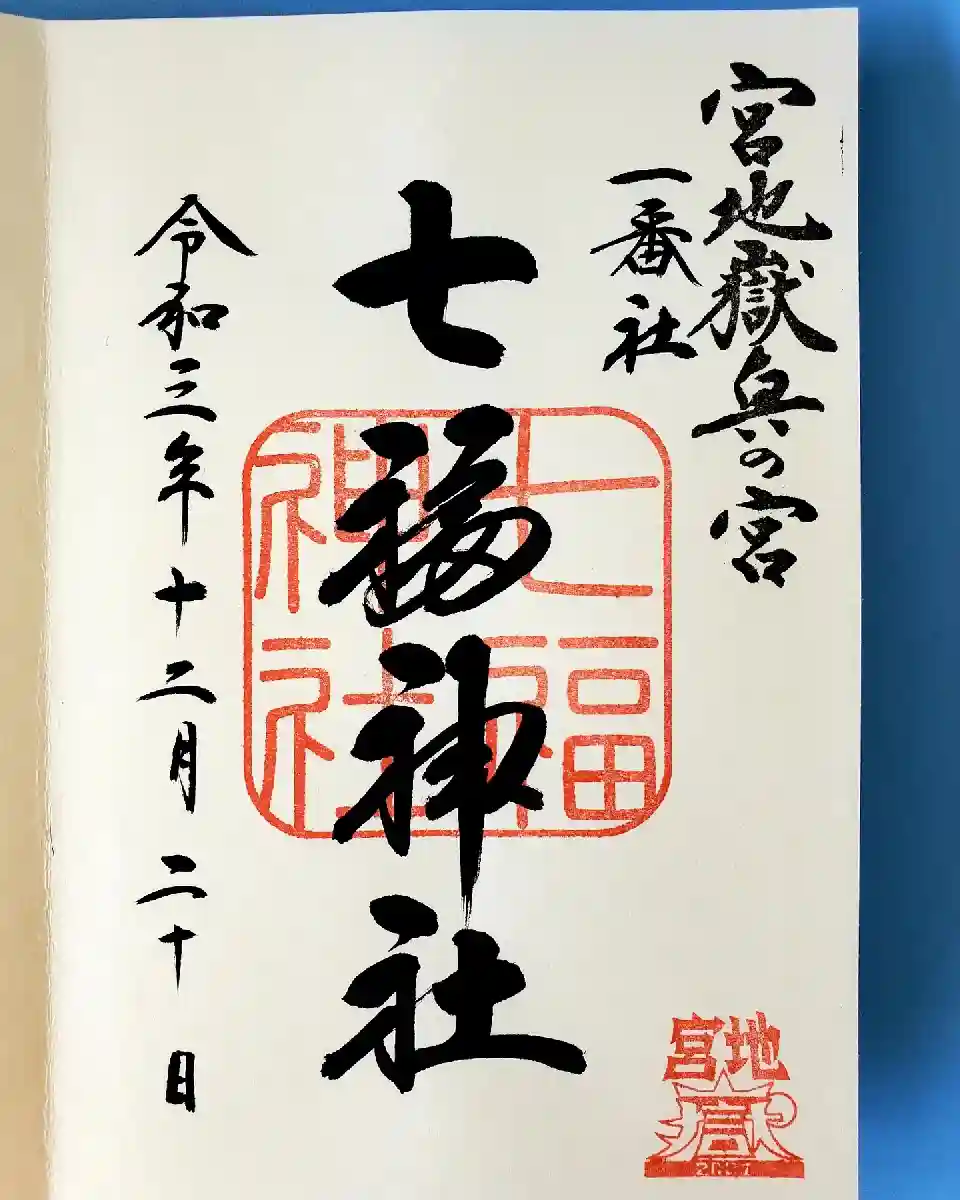 宮地嶽奥の宮
一番社
七福神社
七福神社
令和三年十二月二十日
宮地
嶽